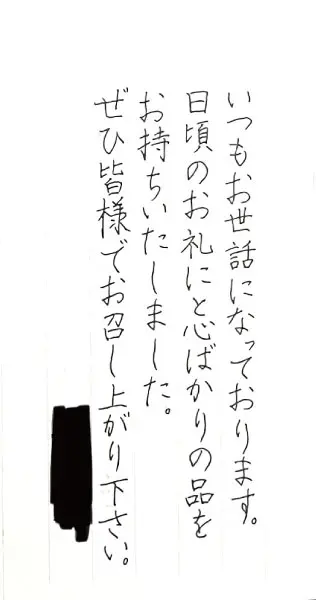 いつもお世話になっております。
日頃のお礼にと心ばかりの品を
お持ちいたしました。
ぜひ皆様でお召し上がり下さい。